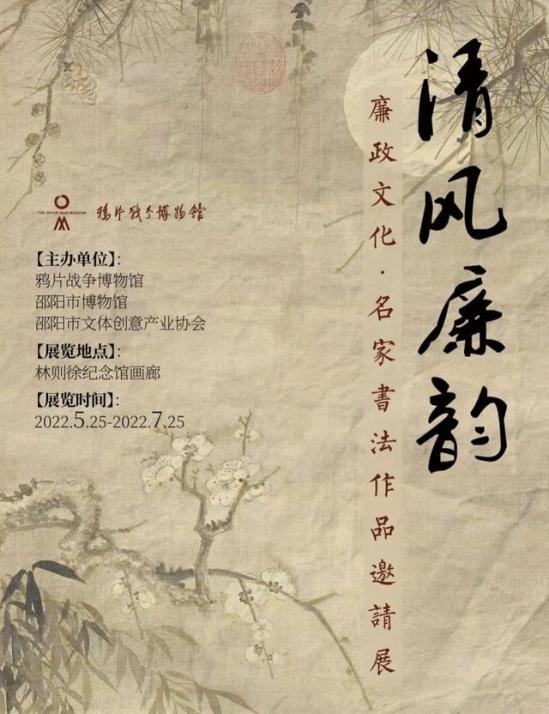 清风廉韵
廉政文化·名家書法作品邀請展
THE OPIUM WAR MUSEUM
鸦片战争博物馆
【主办单位】:
鸦片战争博物馆
邵阳市博物馆
邵阳市文体创意产业协会
【展览地点】:
林则徐纪念馆画廊
【展览时间】:
2022.5.25-2022.7.25